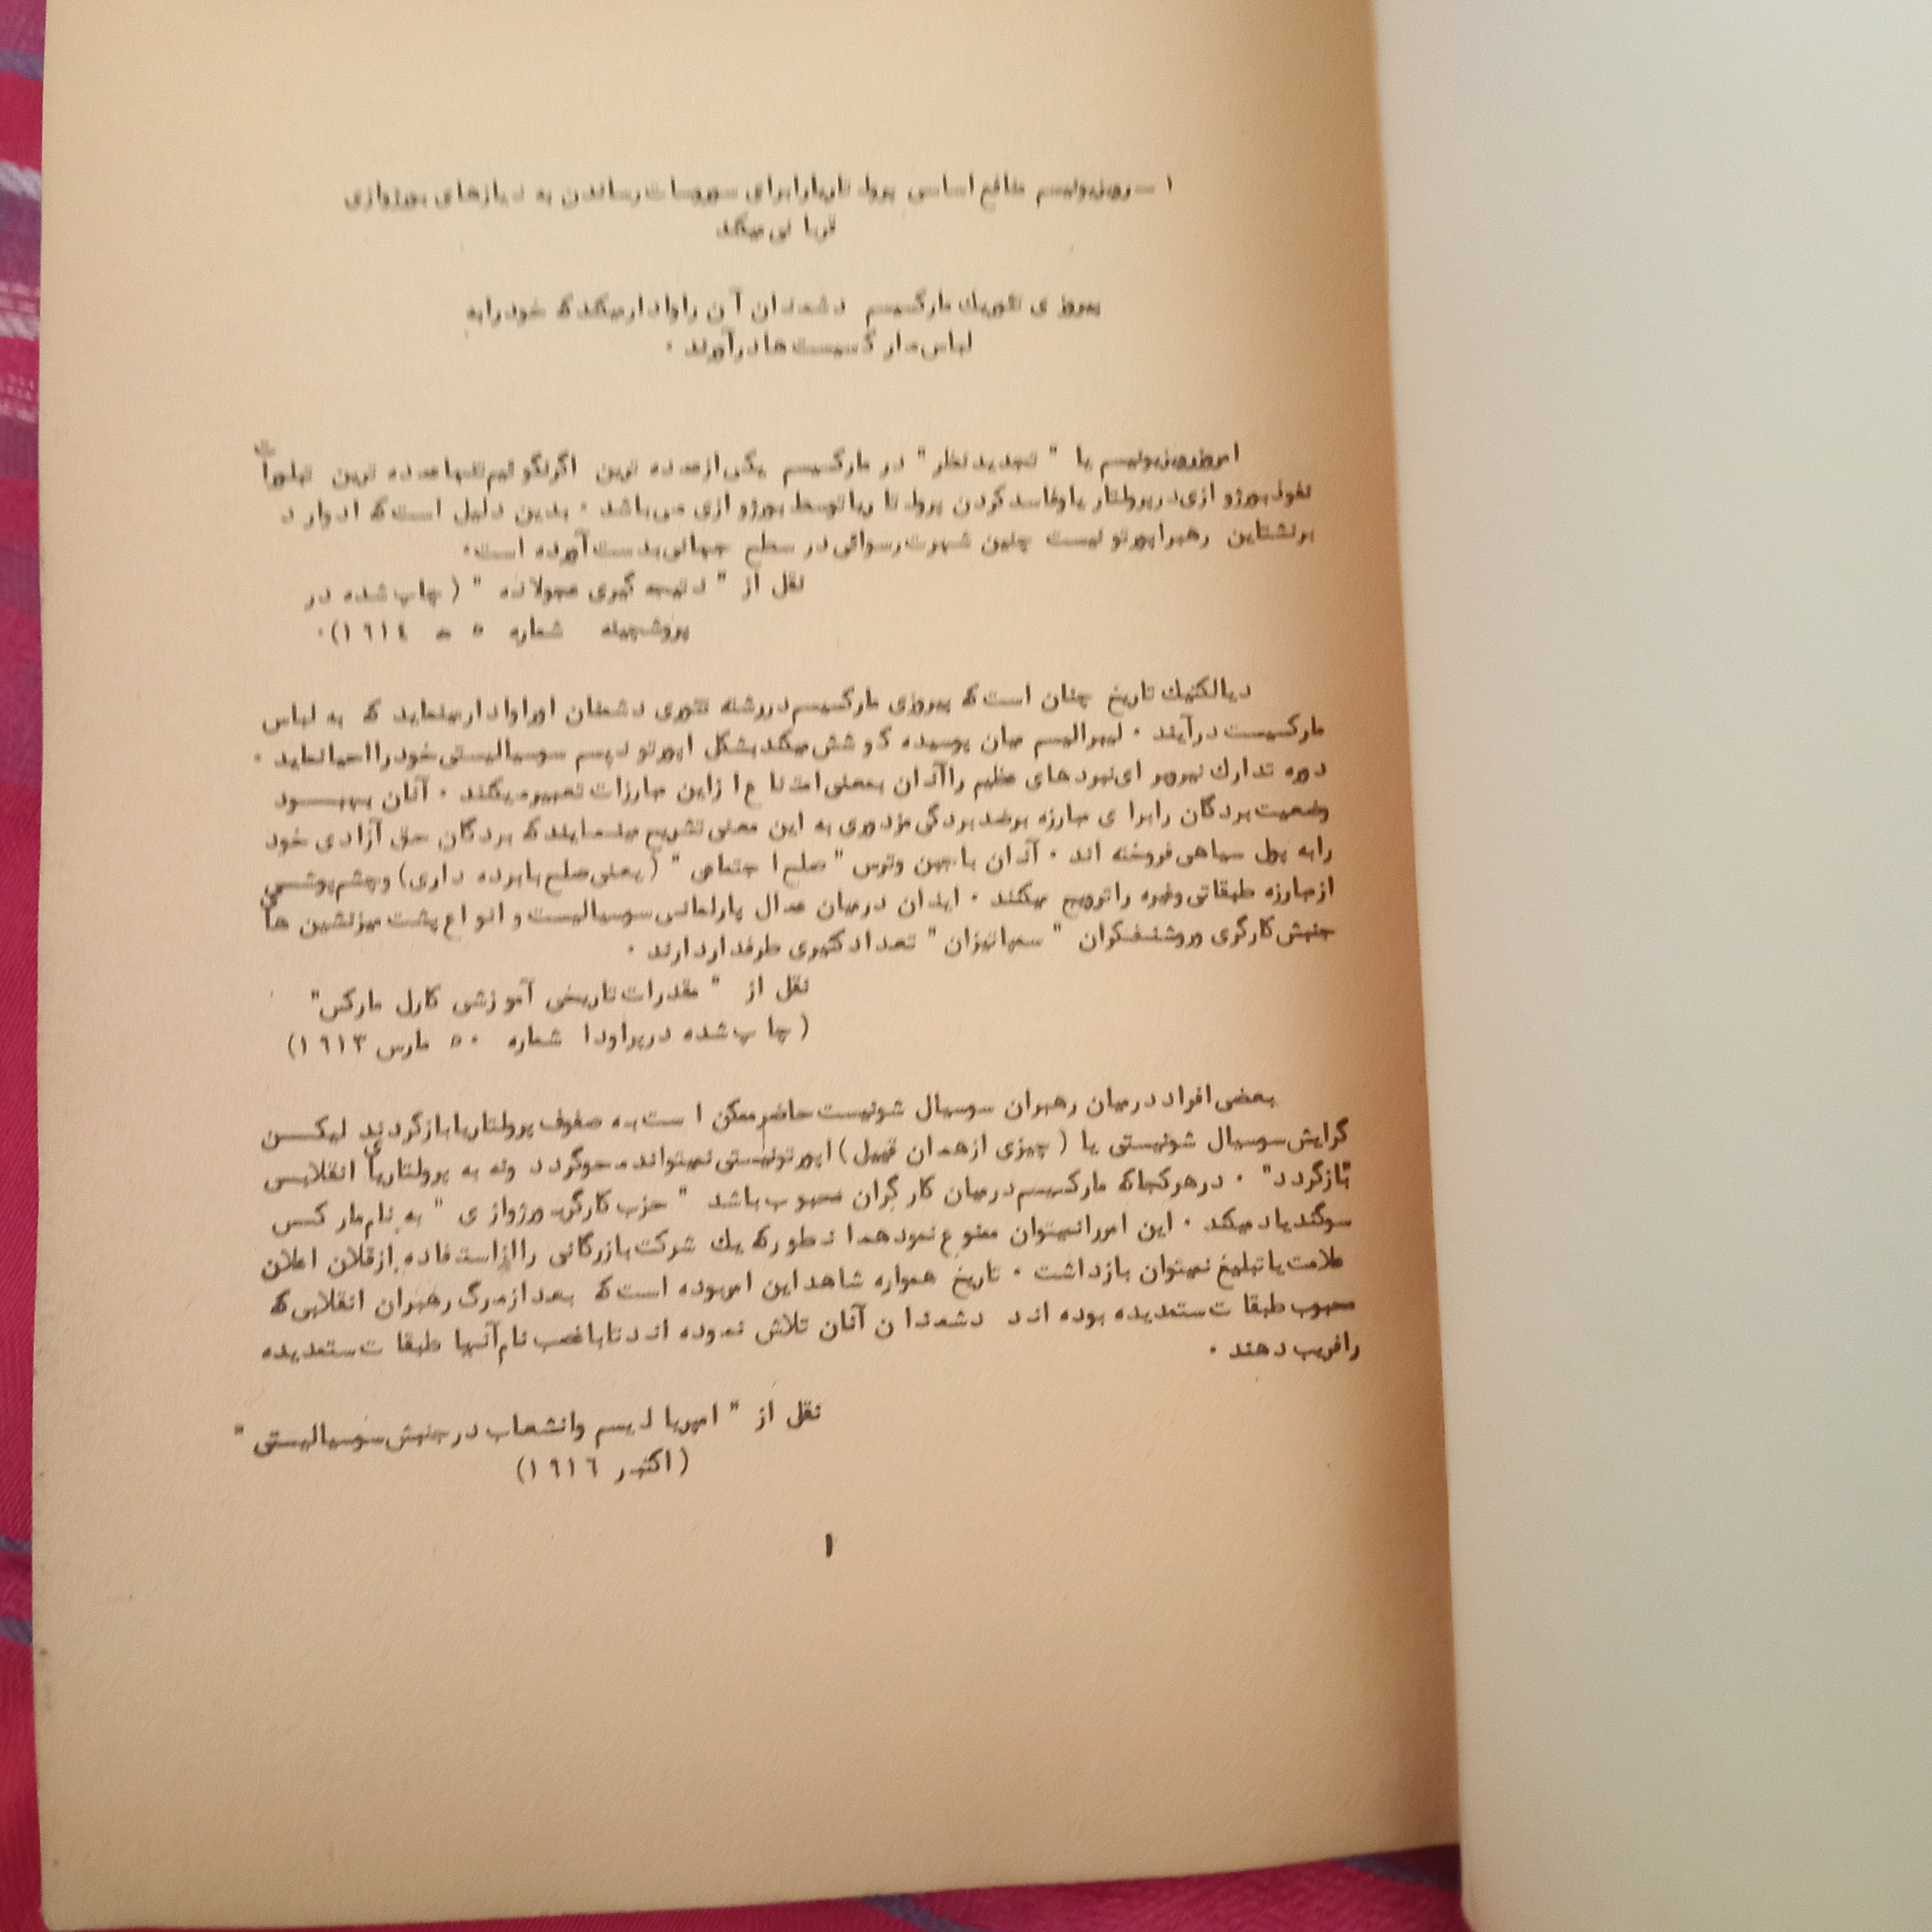 ۱ ــ رویزیونیسم منافع اساسی پرولتاریا را برای سوروسات رساندن به نیازهای بورژوازی
قربانی میکند
پیروزی تئوریك مارکسیسم دشمنان آن را وادار میکند که خود را به
لباس مارکسیست ها درآورند .
امروز رویزیونیسم یا " تجدید نظر " در مارکسیسم یکی از عمده ترین اگر نگوئیم تنها عمده ترین تبلورات
نفوذ بورژوازی در پرولتاریا و فاسد کردن پرولتاریا توسط بورژوازی می باشد . بدین دلیل است که ادوارد
برنشتاین رهبر اپورتونیست چنین شهرت رسوائی در سطح جهانی بدست آورده است.
نقل از " نتیجه گیری عجولانه " ( چاپ شده در
پروشچینه شماره ۵ مه ۱۹۱٤).
دیالکتیك تاریخ چنان است که پیروزی مارکسیسم در رشته تئوری دشمنان او را وادار مینماید که به لباس
مارکسیست درآیند . لیبرالیسم میان پوسیده کوشش میکند بشکل اپورتونیسم سوسیالیستی خود را احیا نماید .
دوره تدارك نیرو برای نبردهای عظیم را آنان بمعنی امتناع از این مبارزات تعبیر میکنند . آنان بهبــود
وضعیت بردگان را برای مبارزه برضد بردگی مزدوری به این معنی تشریح مینمایند که بردگان حق آزادی خود
را به پول سیاهی فروخته اند . آنان با جبن وترس " صلح اجتماعی " ( یعنی صلح با برده داری) وچشم پوشــی
از مبارزه طبقاتی وغیره را ترویج میکنند . اینان درمیان عمال پارلمانی سوسیالیست و انواع پشت میزنشین های
جنبش کارگری وروشنفکران " سمپاتیزان " تعداد کثیری طرفدار دارند .
نقل از " مقدرات تاریخی آموزشی کارل مارکس"
( چاپ شده در پراودا شماره ۵۰ مارس ۱۹۱۳)
بعضی افراد درمیان رهبران سوسیال شونیست حاضر ممکن است به صفوف پرولتاریا بازگردند لیکــن
گرایش سوسیال شونیستی یا ( چیزی از همان قبیل ) اپورتونیستی نمیتواند محو گردد ونه به پرولتاریای انقلابی
"بازگردد" . در هر کجا که مارکسیسم درمیان کارگران محبوب باشد " حزب کارگری بورژوازی " به نام مارکس
سوگند یاد میکند . این امر را نمیتوان ممنوع نمود همانطور که یك شرکت بازرگانی را از استفاده از فلان اعلان
علامت یا تبلیغ نمیتوان بازداشت . تاریخ همواره شاهد این امر بوده است که بعد از مرگ رهبران انقلابی که
محبوب طبقات ستمدیده بوده اند دشمنان آنان تلاش نموده اند تا با غصب نام آنها طبقات ستمدیده
را فریب دهند .
نقل از " امپریالیسم وانشعاب در جنبش سوسیالیستی "
( اکتبر ۱۹۱٦)
۱